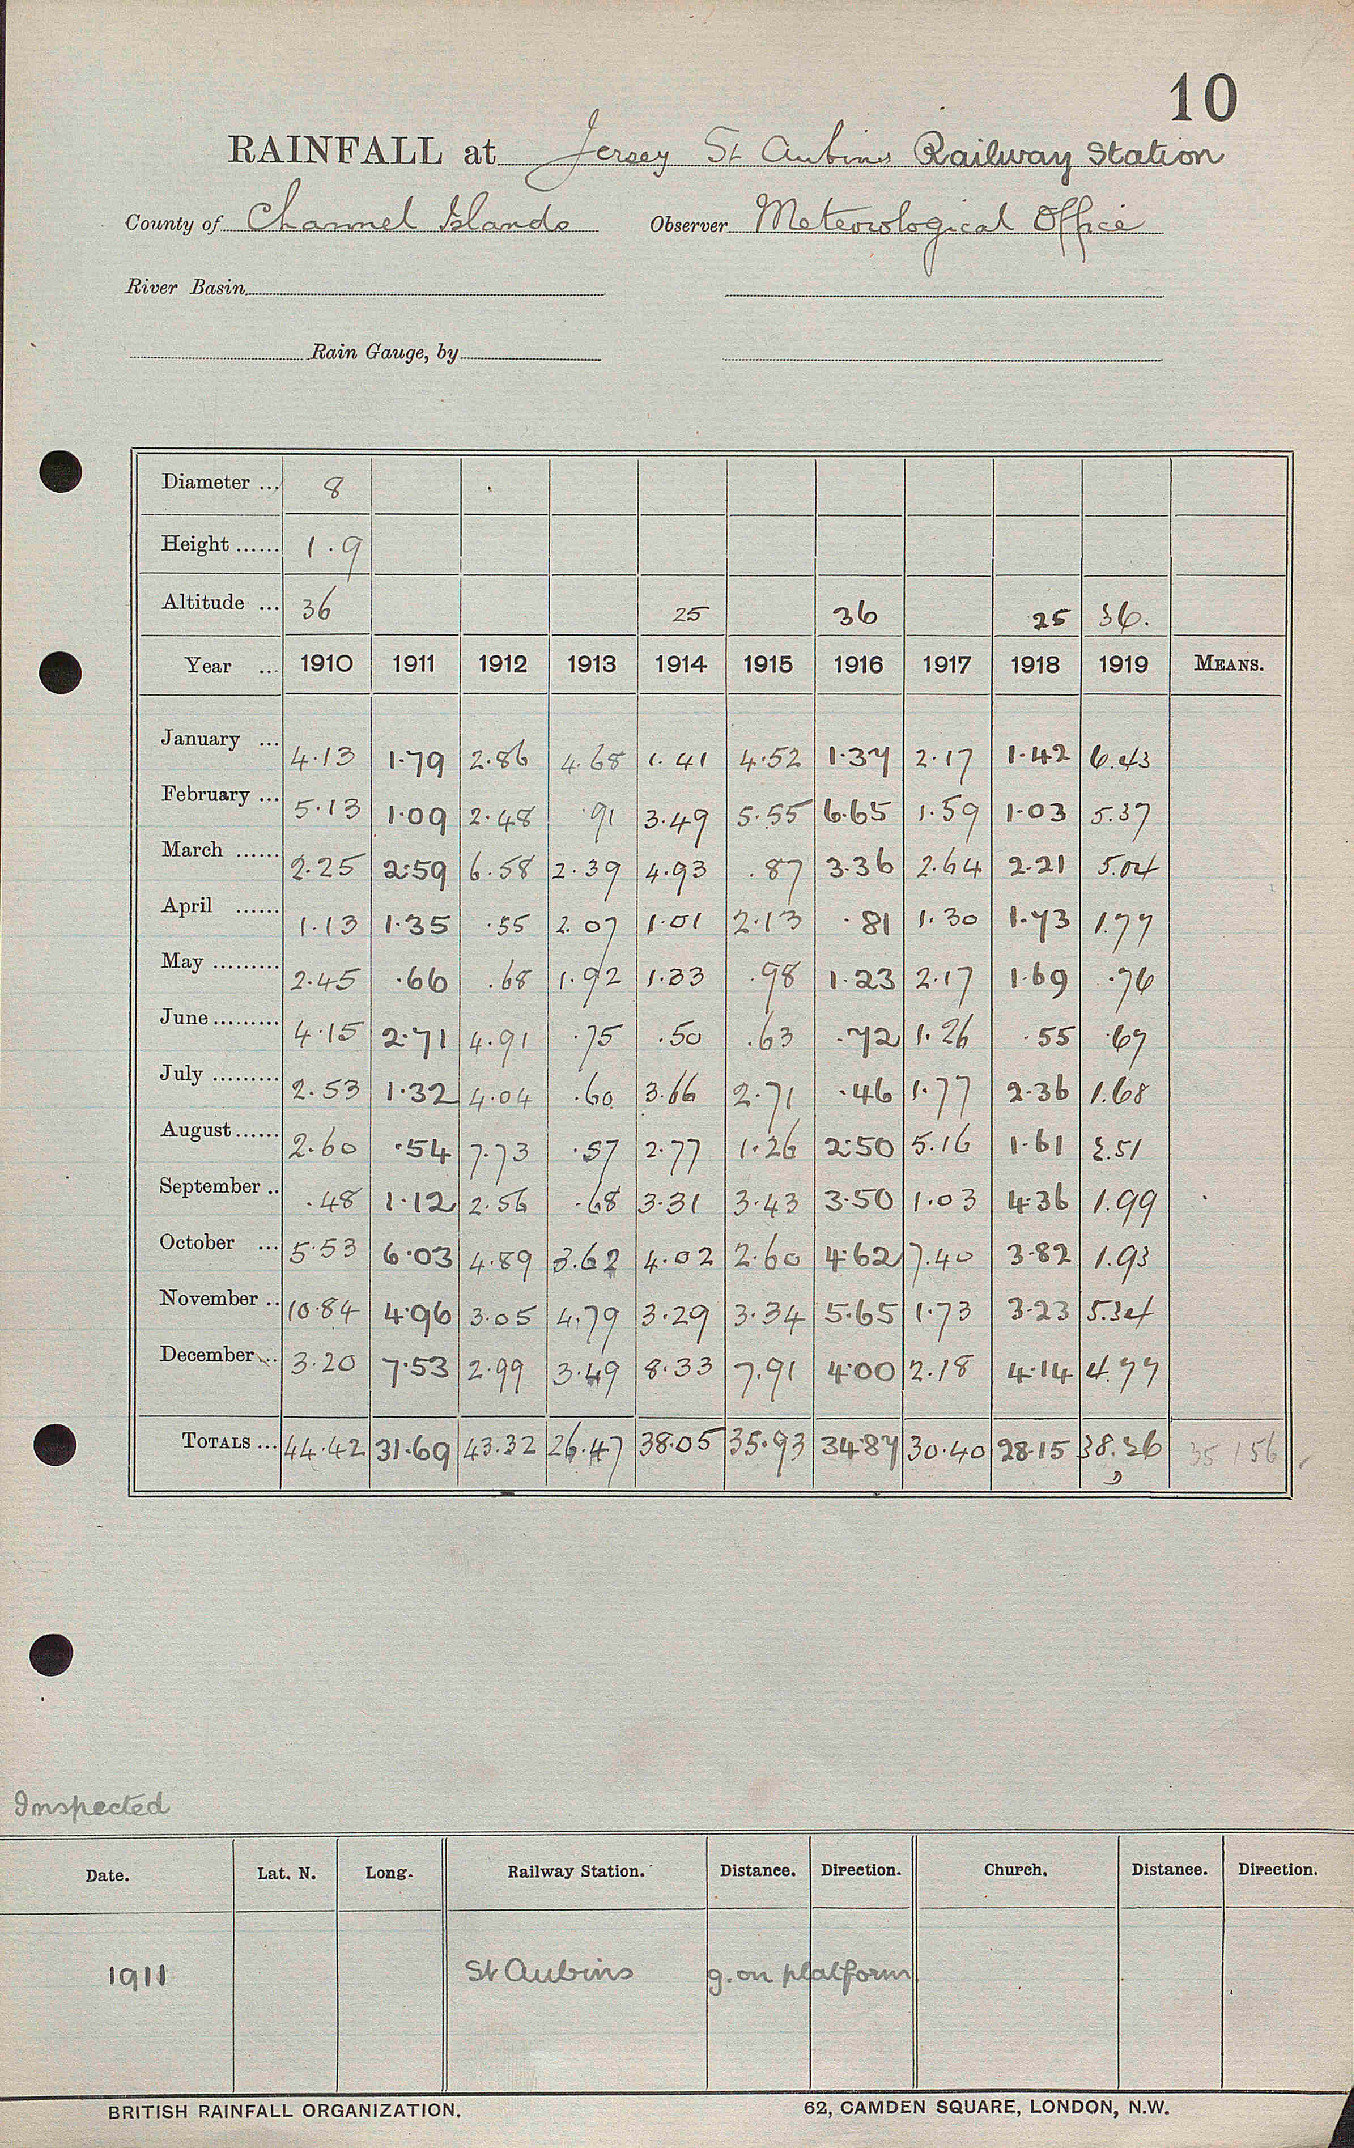 10
RAINFALL at Jersey St Aubins Railway Station
County of Channel Islands Observer Meteorological Office
River Basin
Rain Gauge, by
Diameter ... 8
Height ...... 1.9
Altitude ... 36 25 36 25 36.
Year ... 1910 1911 1912 1913 1914 1915 1916 1917 1918 1919 MEANS.
January ... 4.13 1.79 2.86 4.68 1.41 4.52 1.37 2.17 1.42 6.43
February ... 5.13 1.09 2.48 .91 3.49 5.55 6.65 1.59 1.03 5.37
March ...... 2.25 2.59 6.58 2.39 4.93 .87 3.36 2.64 2.21 5.04
April ...... 1.13 1.35 .55 2.07 1.01 2.13 .81 1.30 1.73 1.77
May ......... 2.45 .66 .68 1.92 1.33 .98 1.23 2.17 1.69 .76
June ......... 4.15 2.71 4.91 .75 .50 .63 .72 1.26 .55 .67
July ......... 2.53 1.32 4.04 .60 3.66 2.71 .46 1.77 2.36 1.68
August ...... 2.60 .54 7.73 .57 2.77 1.26 2.50 5.16 1.61 2.51
September .. .48 1.12 2.56 .68 3.31 3.43 3.50 1.03 4.36 1.99
October ... 5.53 6.03 4.89 3.62 4.02 2.60 4.62 7.40 3.82 1.93
November .. 10.84 4.96 3.05 4.79 3.29 3.34 5.65 1.73 3.23 5.34
December ... 3.20 7.53 2.99 3.49 8.33 7.91 4.00 2.18 4.14 4.77
TOTALS ... 44.42 31.69 43.32 26.47 38.05 35.93 34.87 30.40 28.15 38.26 35 156
Inspected
Date. Lat. N. Long. Railway Station. Distance. Direction. Church. Distance. Direction.
1911 St Aubins g. on platform
BRITISH RAINFALL ORGANIZATION. 62, CAMDEN SQUARE, LONDON, N.W.